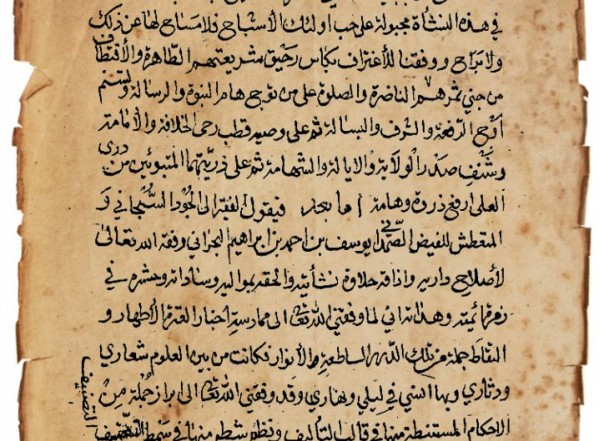 في هذه النشأة مجبولة على حب اولئك الأشباح فلا مساح لها عن ذلك
ولا براح ووفقنا للأغتراف بكاس رحيق شريعتهم الطاهرة والأقتطاف
من جني ثمرهم الناضرة والصلوة على من توج هام النبوة والرسالة وتسنم
اوج الرفعة والشرف والبسالة ثم على وصيه قطب رحى الخلافة والأمامة
وشنف صدر الولاية والايالة والشهامة ثم على ذريتهما المتبوئين من ذرى
العلى ارفع ذروة وهامة اما بعد فيقول الفقير الى الجود السبحاني و
المتعطش للفيض الصمداني يوسف بن احمد بن ابراهيم البحراني وفقه الله تعالى
لأصلاح داريه واذاقه حلاوة نشأتيه والحقه بمواليه وساداته وحشره في
زمرة ائمته وهداته اني لما وفقني الله تعالى لممارسة اخبار العترة الأطهار و
التقاط جملة من تلك الدرر الساطعة الأنوار فكانت من بين العلوم شعاري
ودثاري وبها انسي في ليلي ونهاري وقد وفقني الله تعالى الى ابراز جملة من
الاحكام المستنبطة منها في قالب التأليف ونظم شطر منها في سمط
التصنيف